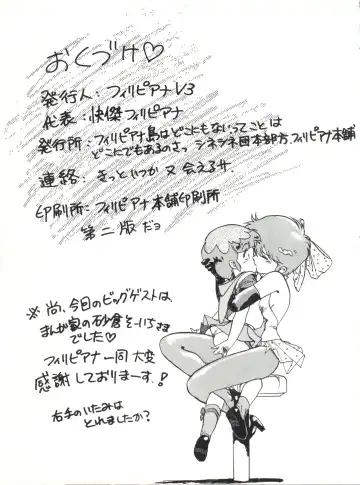 おくづけ♡
発行人：フィリピアナV3
代表：快傑フィリピアナ
発行所：フィリピアナ島はどこにもないってことは
どこにでもあるのさっ シネシネ団本部方.フィリピアナ本舗
連絡：きっといつか又会えるサ.
印刷所：フィリピアナ本舗印刷所
第二版だョ
※尚、今日のビッグゲストは、
まんが家の砂倉そーいちさま
でした♡
フィリピアナ一同 大変
感謝しておりまーす.!
右手のいたみは
とれましたか?